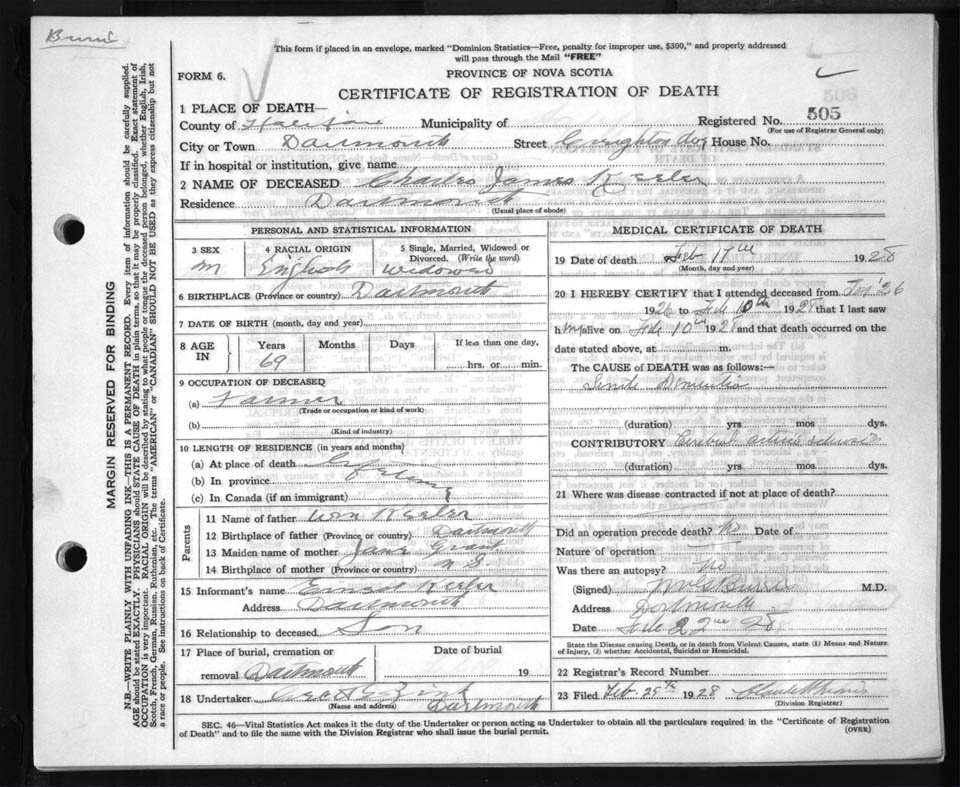 This form if placed in an envelope, marked "Dominion Statistics—Free, penalty for improper use, $300," and properly addressed
will pass through the Mail "FREE"
FORM 6.
PROVINCE OF NOVA SCOTIA
CERTIFICATE OF REGISTRATION OF DEATH
1 PLACE OF DEATH—
Registered No. 505
(For use of Registrar General only)
County of Halifax Municipality of
City or Town Dartmouth Street House No.
If in hospital or institution, give name
2 NAME OF DECEASED Charles James Keeler
Residence Dartmouth
(Usual place of abode)
PERSONAL AND STATISTICAL INFORMATION
3 SEX 4 RACIAL ORIGIN 5 Single, Married, Widowed or Divorced. (Write the word)
M English Widowed
6 BIRTHPLACE (Province or country) Dartmouth
7 DATE OF BIRTH (month, day and year)
8 AGE IN Years Months Days If less than one day,
69 hrs. or min.
9 OCCUPATION OF DECEASED
(a) Farmer
(Trade or occupation or kind of work)
(b)
(Kind of industry)
10 LENGTH OF RESIDENCE (in years and months)
(a) At place of death
(b) In province
(c) In Canada (if an immigrant)
Parents
11 Name of father Wm Keeler
12 Birthplace of father (Province or country) Dartmouth
13 Maiden name of mother Jane Grant
14 Birthplace of mother (Province or country) N S
15 Informant's name Ernest Keeler
Address Dartmouth
16 Relationship to deceased Son
17 Place of burial, cremation or Date of burial
removal Dartmouth 19
18 Undertaker Zink
(Name and address) Dartmouth
MEDICAL CERTIFICATE OF DEATH
19 Date of death Feb 17th 1928
(Month, day and year)
20 I HEREBY CERTIFY that I attended deceased from '26
1926 to Feb 10th 1928 that I last saw
h m alive on Feb 10th 1928 and that death occurred on the
date stated above, at m.
The CAUSE of DEATH was as follows:—
Senile Dementia
(duration) yrs. mos. dys.
CONTRIBUTORY
(duration) yrs. mos. dys.
21 Where was disease contracted if not at place of death?
Did an operation precede death? No Date of
Nature of operation
Was there an autopsy? No
(Signed) M.D.
Address Dartmouth
Date Feb 22nd 28
State the Disease causing Death, or in death from Violent Causes, state (1) Means and Nature
of Injury, (2) whether Accidental, Suicidal or Homicidal.
22 Registrar's Record Number
23 Filed Feb. 25th 1928
(Division Registrar)
SEC. 46—Vital Statistics Act makes it the duty of the Undertaker or person acting as Undertaker to obtain all the particulars required in the "Certificate of Registration
of Death" and to file the same with the Division Registrar who shall issue the burial permit.
(OVER)
MARGIN RESERVED FOR BINDING
N.B.—WRITE PLAINLY WITH UNFADING INK—THIS IS A PERMANENT RECORD. Every item of information should be carefully supplied.
AGE should be stated EXACTLY. PHYSICIANS should STATE CAUSE OF DEATH in plain terms, so that it may be properly classified. Exact statement of
OCCUPATION is very important. RACIAL ORIGIN will be described by stating to what people or tongue the deceased person belonged, whether English, Irish,
Scotch, French, German, Russian, Ruthenian, etc. The terms "AMERICAN" or "CANADIAN" SHOULD NOT BE USED as they express citizenship but not
a race or people. See instructions on back of Certificate.